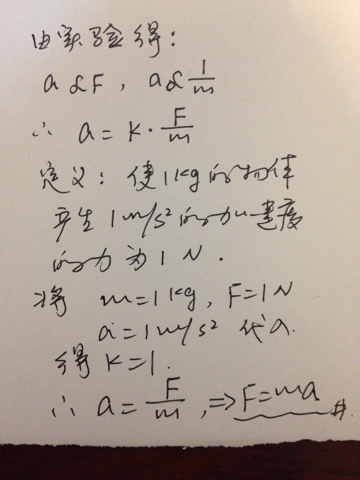 由实验得:
a ∝ F, a ∝ 1/m
∴ a = K · F/m
定义: 使1kg的物体
产生1m/s²的加速度
的力为1N.
将 m=1kg, F=1N
a=1m/s² 代入.
得 K=1.
∴ a = F/m, ⇒ F=ma #